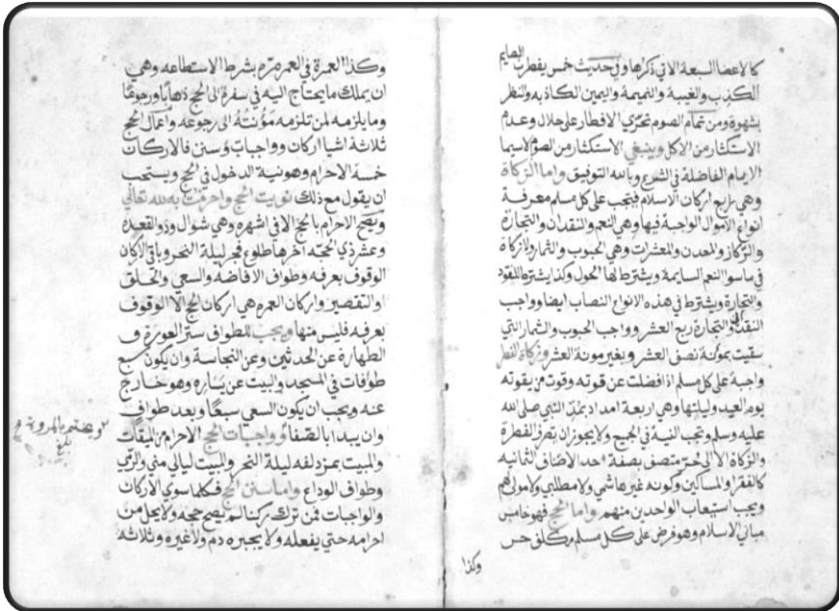 كالاعضا السبعة الاتي ذكرها وفي حديث خمس يفطرن الصايم
الكذب والغيبة والنميمة واليمين الكاذبه والنظر
بشهوة ومن تمام الصوم تحري الافطار على حلال وعدم
الاستكثار من الاكل وينبغي الاستكثار من الصوم لاسيما
الايام الفاضلة في الشرع وبالله التوفيق واما الزكاة
وهي رابع اركان الاسلام فيجب على كل مسلم معرفة
انواع الاموال الواجبة فيها وهي النعم والنقدان والتجارة
والركاز والمعدن والمعشرات وهي الحبوب والثمار ولا زكاة
في ما سوا النعم السايمة ويشترط لها الحول وكذا يشترط للنقود
والتجارة ويشترط في هذه الانواع النصاب ايضا وواجب
النقدان والتجارة ربع العشر وواجب الحبوب والثمار التي
سقيت بمؤنة نصف العشر وبغير مونة العشر وزكاة الفطر
واجبة على كل مسلم اذا فضلت عن قوته وقوت من يقوته
يوم العيد وليلتها وهي اربعة امداد بمد النبي صلى الله
عليه وسلم وتجب النية في الجميع ولا يجوز ان يصرف الفطرة
والزكاة الا الى حر متصف بصفة احد الاصناف الثمانيه
كالفقرا والمساكين وكونه غير هاشمي ولا مطلبي ولا مولى لهم
ويجب استيعاب الواحدين منهم واما الحج فهو خامس
مباني الاسلام وهو فرض على كل مسلم مكلف حر
وكذا
وكذا العمرة في العمر مرة بشرط الاستطاعه وهي
ان يملك ما يحتاج اليه في سفره الى الحج ذهابا ورجوعا
وما يلزمه لمن تلزمه مؤنته الى رجوعه واعمال الحج
ثلاثة اشيا اركان وواجبات وسنن فالاركان
خمسة الاحرام وهو نية الدخول في الحج ويستحب
ان يقول مع ذلك نويت الحج واحرمت به لله تعالى
ويصح الاحرام بالحج الا في اشهره وهي شوال وذو القعده
وعشر ذي الحجه آخرها طلوع فجر ليلة النحر وباقي الاركان
الوقوف بعرفه وطواف الافاضة والسعي والحلق
او التقصير واركان العمره هي اركان الحج الا الوقوف
بعرفه فليس منها ويجب للطواف ستر العورة و
الطهارة عن الحدثين وعن النجاسة وان يكون سبع
طوافات في المسجد والبيت عن يساره وهو خارج
عنه ويجب ان يكون السعي سبعا وبعد طواف
وان يبدا بالصفا وواجبات الحج الاحرام من الميقات
والمبيت بمزدلفه ليلة النحر والمبيت ليالي منى والرمي
وطواف الوداع واما سنن الحج فكلما سوى الاركان
والواجبات فمن ترك ركنا لم يصح حجه ولا يحل من
احرامه حتى يفعله ولا يجبره دم ولا غيره وثلاثة
ويختم بالمروة